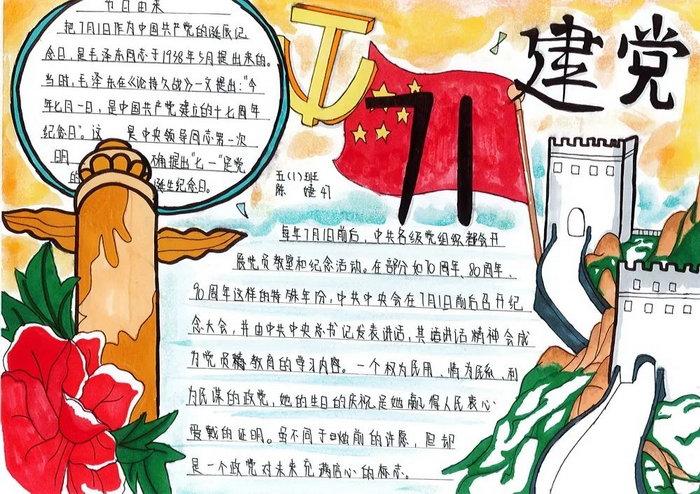 节日由来
把7月1日作为中国共产党的诞辰纪
念日,是毛泽东同志于1938年5月提出来的。
当时,毛泽东在《论持久战》一文提出:"今
年七月一日,是中国共产党建立的十七周年
纪念日"。这 是中央领导同志第一次
明 确提出"七一"是党
的 诞生纪念日。
建党
71
五(1)班
陈 婕 41
每年7月1日前后,中共各级党组织都会开
展党员教育和纪念活动。在部分如70周年、80周年、
90周年这样的特殊年份,中共中央会在7月1日前后召开纪
念大会,并由中共中央总书记发表讲话,其讲话精神会成
为党员教育的学习内容。一个权为民用、情为民系、利
为民谋的政党,她的生日的庆祝是她赢得人民衷心
爱戴的证明。虽不同于 前的许愿,但却
是一个政党对未来充满信心的标志。